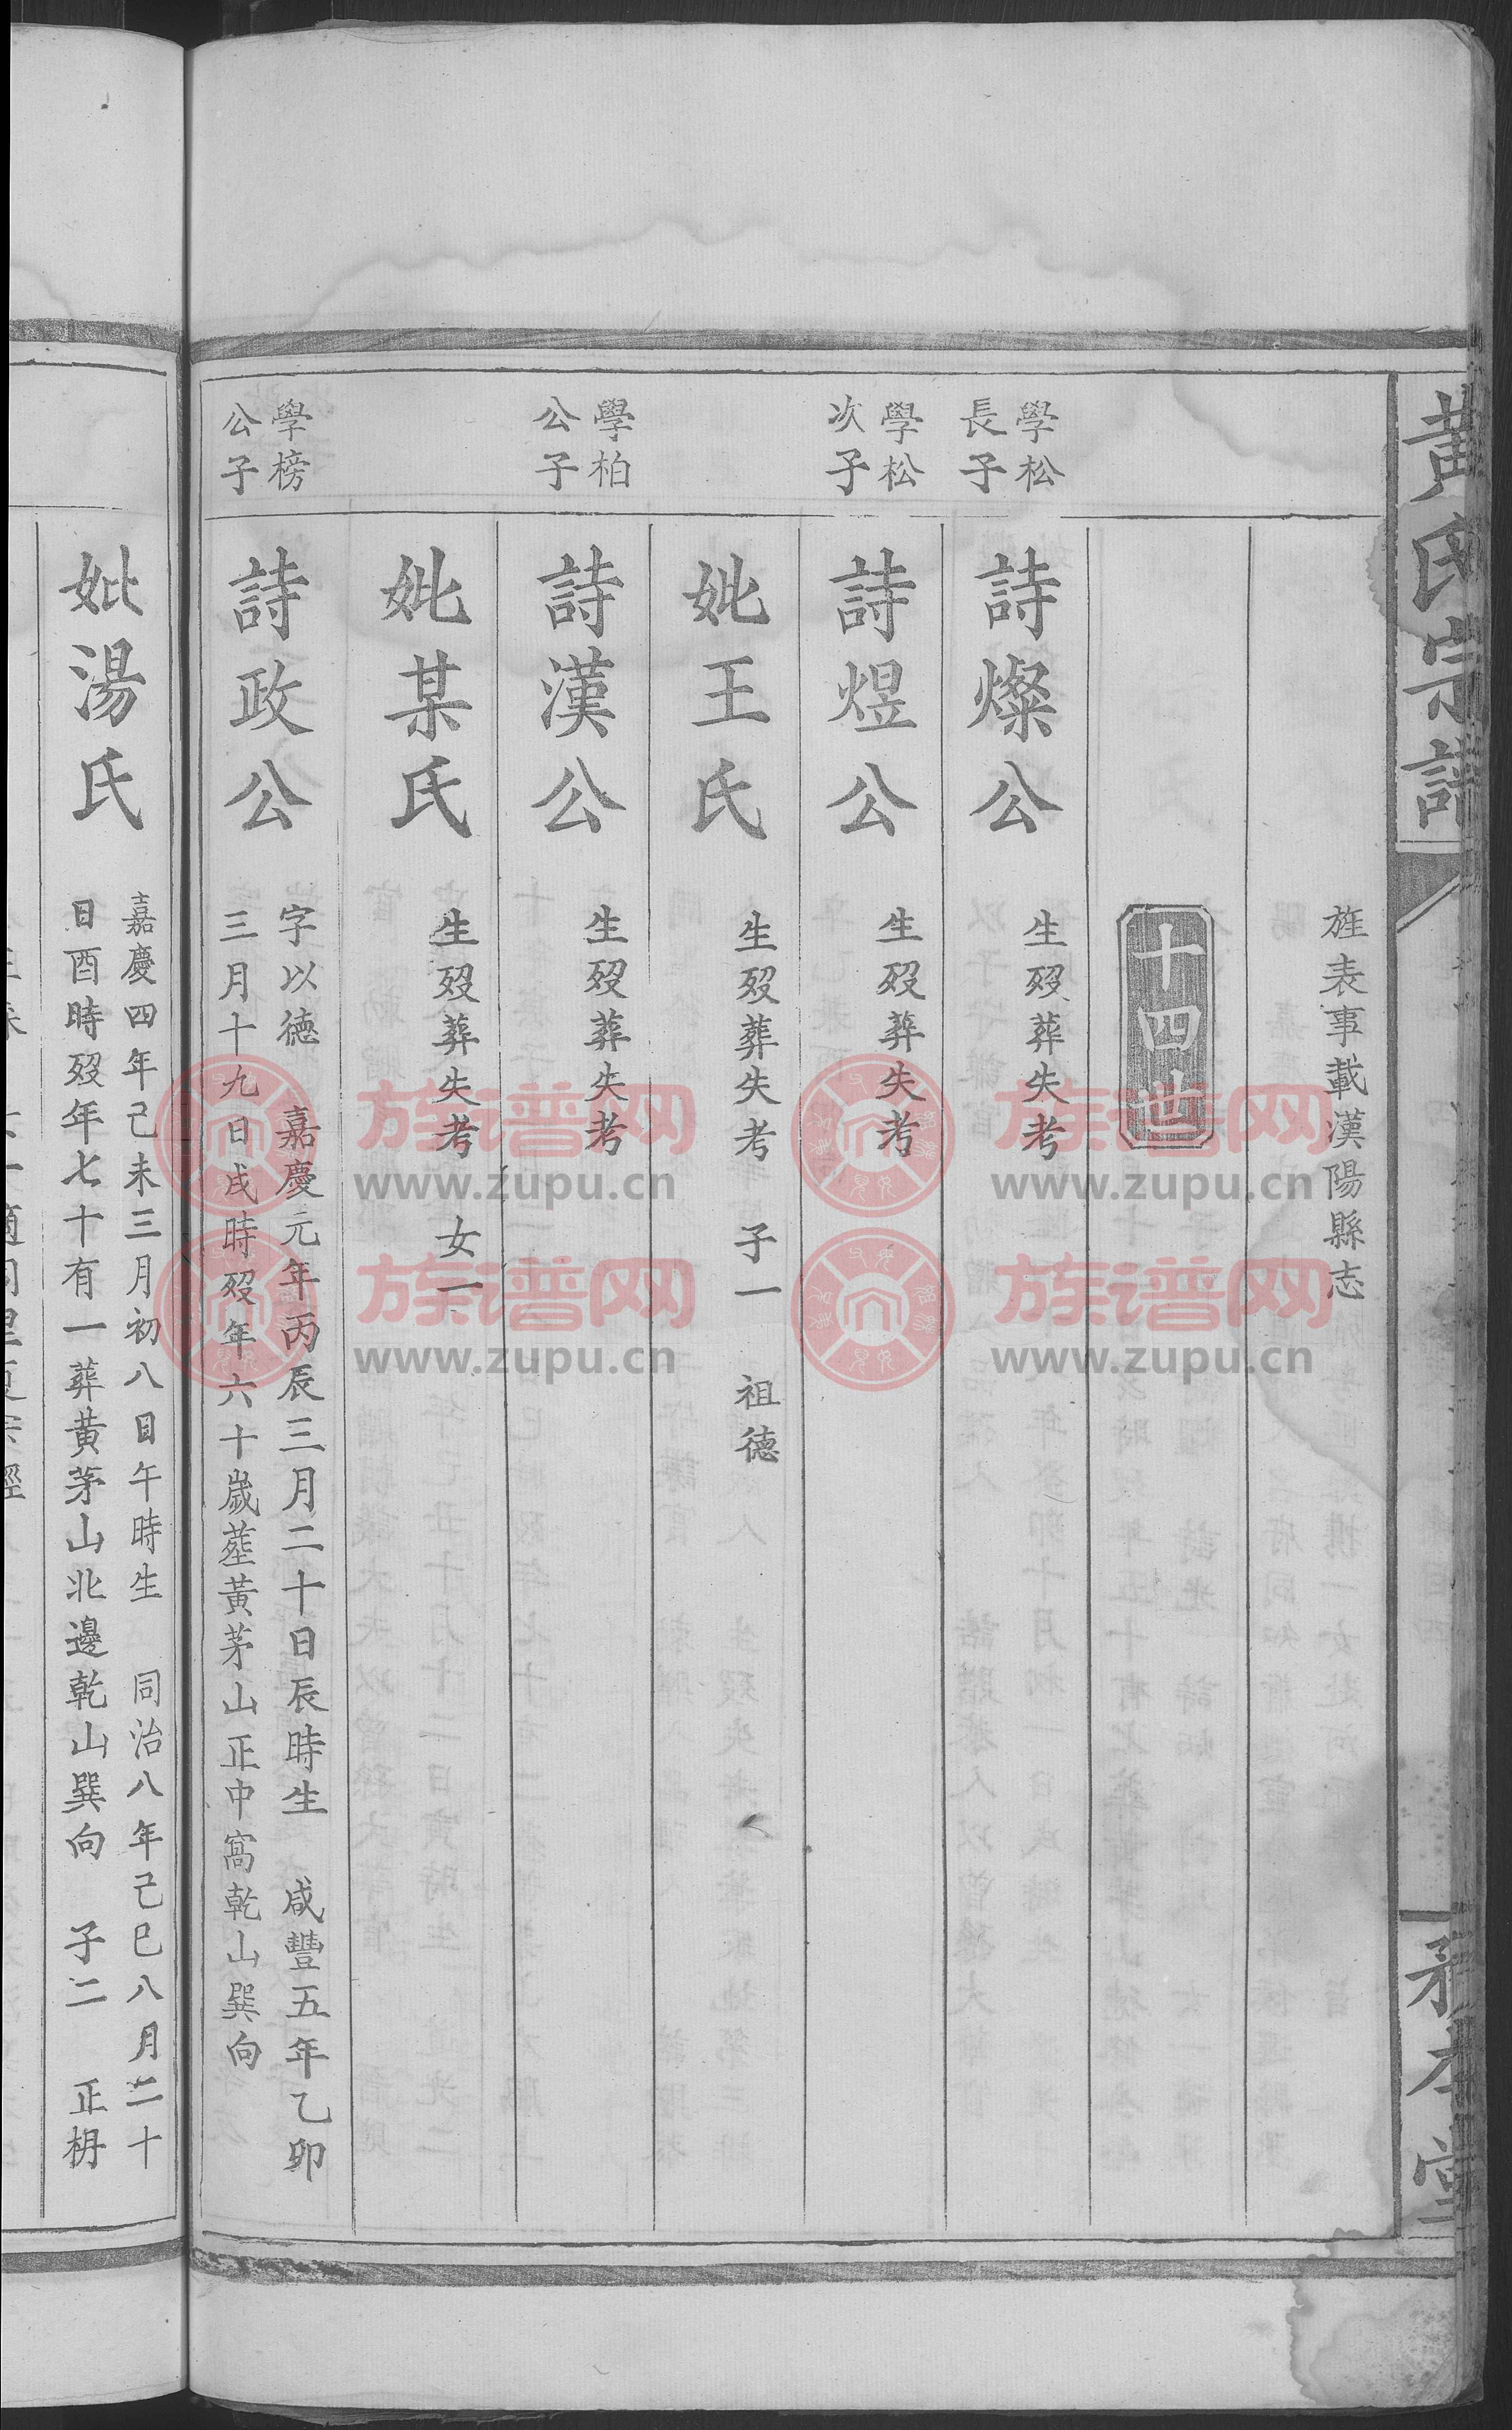 黃氏宗譜
旌表事載漢陽縣志
十四世
學松
長子
詩燦公
生歿葬失考
學松
次子
詩煜公
生歿葬失考
妣王氏
生歿葬失考 子一 祖德
學柏
公子
詩漢公
生歿葬失考
妣某氏
生歿葬失考 女一
學榜
公子
詩政公
字以德 嘉慶元年丙辰三月二十日辰時生 咸豐五年乙卯
三月十九日戌時歿年六十歲塟黃茅山正中窩乾山巽向
妣湯氏
嘉慶四年己未三月初八日午時生 同治八年己巳八月二十
日酉時歿年七十有一葬黃茅山北邊乾山巽向 子二 正枬
族谱网
www.zupu.cn
族谱网
www.zupu.cn
族谱网
www.zupu.cn
族谱网
www.zupu.cn